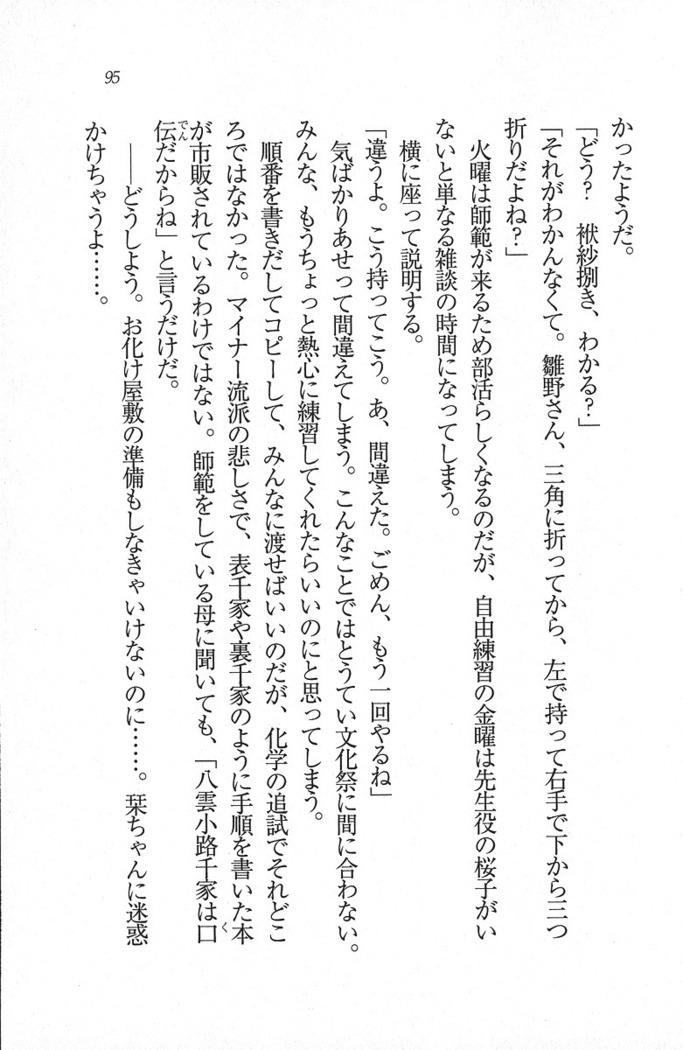 95
かったようだ。
「どう？　袱紗捌き、わかる？」
「それがわかんなくて。雛野さん、三角に折ってから、左で持って右手で下から三つ
折りだよね？」
火曜は師範が来るため部活らしくなるのだが、自由練習の金曜は先生役の桜子がい
ないと単なる雑談の時間になってしまう。
横に座って説明する。
「違うよ。こう持ってこう。あ、間違えた。ごめん、もう一回やるね」
気ばかりあせって間違えてしまう。こんなことではとうてい文化祭に間に合わない。
みんな、もうちょっと熱心に練習してくれたらいいのにと思ってしまう。
順番を書きだしてコピーして、みんなに渡せばいいのだが、化学の追試でそれどこ
ろではなかった。マイナー流派の悲しさで、表千家や裏千家のように手順を書いた本
が市販されているわけではない。師範をしている母に聞いても、「八雲小路千家は口
伝だからね」と言うだけだ。
――どうしよう。お化け屋敷の準備もしなきゃいけないのに……。栞ちゃんに迷惑
かけちゃうよ……。